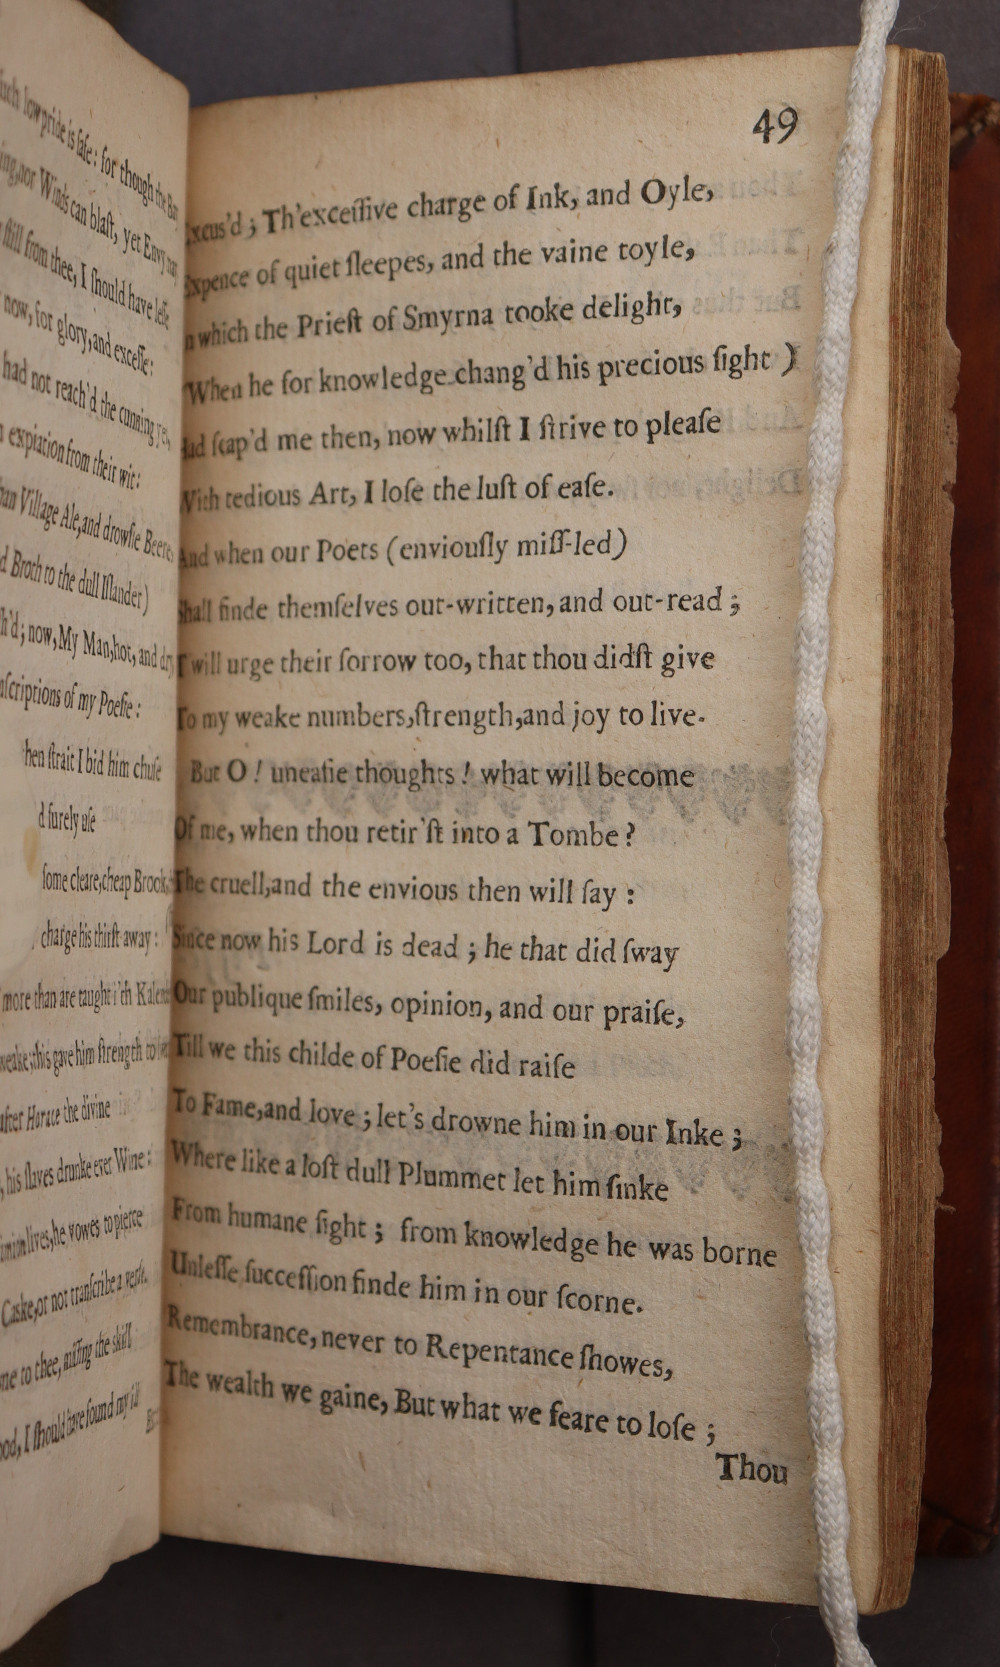 uch low pride is ſafe: for though the
nor Winds can blaſt, yet Envy
ſtill from thee, I ſhould have leſſe
now, for glory, and exceſſe:
had not reach'd the cunning yet,
expiation from their wit:
Village Ale, and drowſie Beere,
Broth to the dull Iſlander)
h'd; now, My Man, hot, and dry
nſcriptions of my Poeſie:
hen ſtrait I bid him chuſe
d ſurely uſe
ſome cleare, cheap Brook,
charge his thirſt away:
more than are taught i'th Kalen
weake; this gave him ſtrength to
after Horace the divine
his ſlaves drunke ever Wine:
lives, he vowes to pierce
Caske, or not tranſcribe a verſe.
me to thee, miſſing the skill
ood, I ſhould have found my ill
49
Excus'd; Th'exceſſive charge of Ink, and Oyle,
Expence of quiet ſleepes, and the vaine toyle,
In which the Prieſt of Smyrna tooke delight,
When he for knowledge chang'd his precious ſight)
Had ſcap'd me then, now whilſt I ſtrive to pleaſe
With tedious Art, I loſe the luſt of eaſe.
And when our Poets (enviouſly miſſ-led)
Shall finde themſelves out-written, and out-read;
T'will urge their ſorrow too, that thou didſt give
To my weake numbers, ſtrength, and joy to live.
But O! uneaſie thoughts! what will become
Of me, when thou retir'ſt into a Tombe?
The cruell, and the envious then will ſay:
Since now his Lord is dead; he that did ſway
Our publique ſmiles, opinion, and our praiſe,
Till we this childe of Poeſie did raiſe
To Fame, and love; let's drowne him in our Inke;
Where like a loſt dull Plummet let him ſinke
From humane ſight; from knowledge he was borne
Unleſſe ſucceſſion finde him in our ſcorne.
Remembrance, never to Repentance ſhowes,
The wealth we gaine, But what we feare to loſe;
Thou